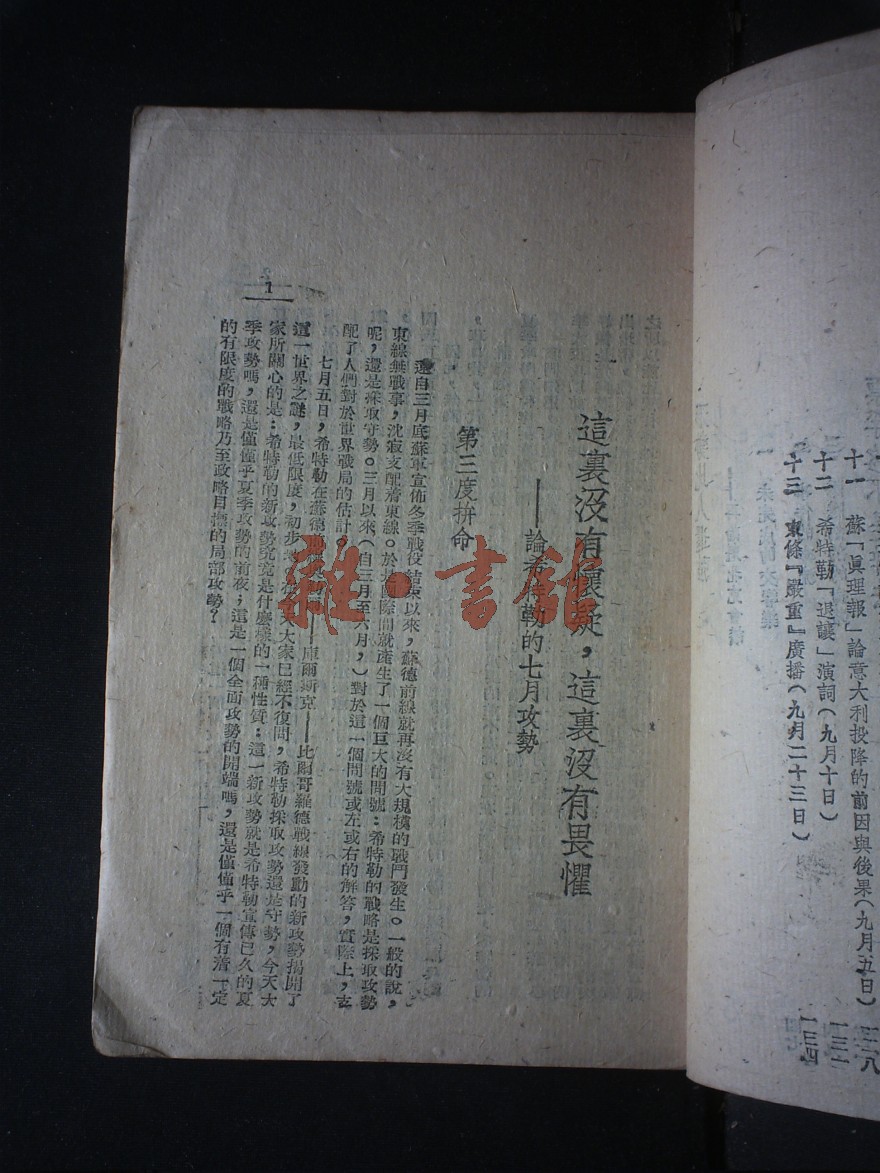 十一　蘇「眞理報」論意大利投降的前因與後果(九月五日)　一二八
十二　希特勒「退讓」演詞(九月十日)　一三一
十三　東條『嚴重』廣播(九月二十三日)　一三四
一
這裏沒有懷疑，這裏沒有畏懼
——論希特勒的七月攻勢
第三度拚命
遠自三月底蘇軍宣佈冬季戰役結束以來，蘇德前線就再沒有大規模的戰鬥發生。一般的說，
東線無戰事，沈寂支配着東線。於是國際間就產生了一個巨大的問號：希特勒的戰略是採取攻勢
呢，還是採取守勢。三月以來(自三月至六月，)對於這一個問號或左或右的解答，實際上，支
配了人們對於世界戰局的估計。
七月五日，希特勒在蘇德 庫爾斯克——比爾哥羅德戰線發動的新攻勢揭開了
這一世界之謎，最低限度，初步 大家已經不復問，希特勒採取攻勢還是守勢，今天大
家所關心的是：希特勒的新攻勢究竟是什麼樣的一種性質：這一新攻勢就是希特勒宣傳已久的夏
季攻勢嗎，還是僅僅乎夏季攻勢的前夜；這是一個全面攻勢的開端嗎，還是僅僅乎一個有着一定
的有限度的戰略乃至政略目標的局部攻勢？
1
雜·書館